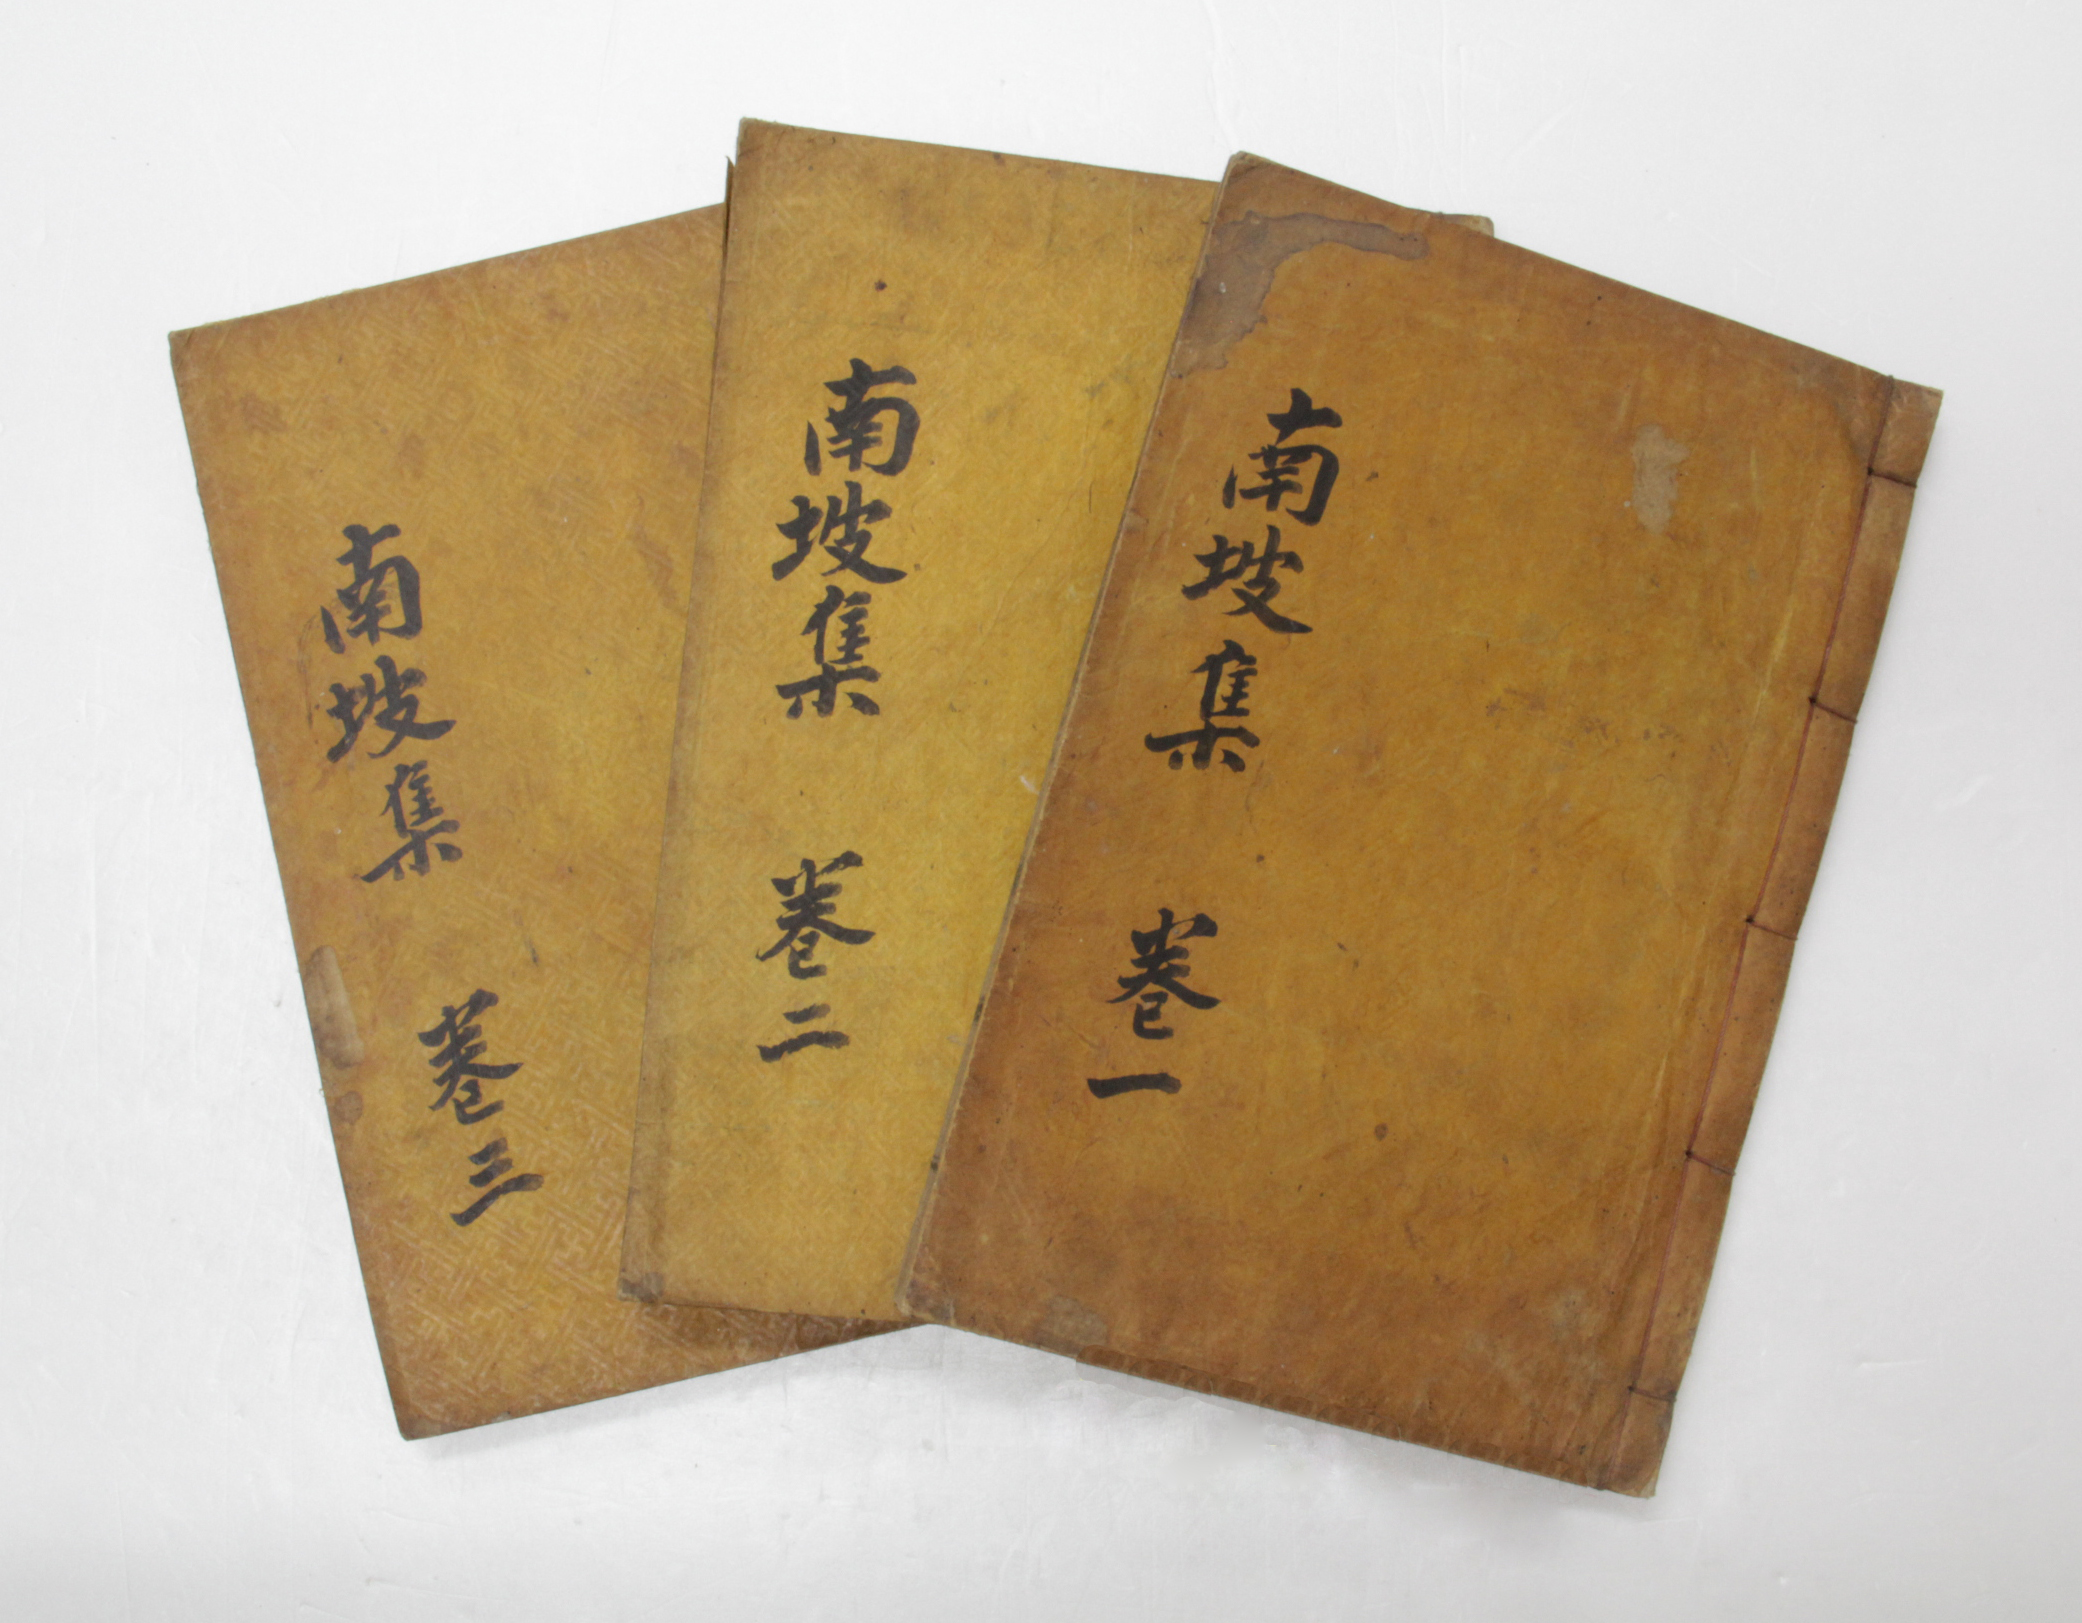 南坡集 卷一
南坡集 卷二
南坡集 卷三